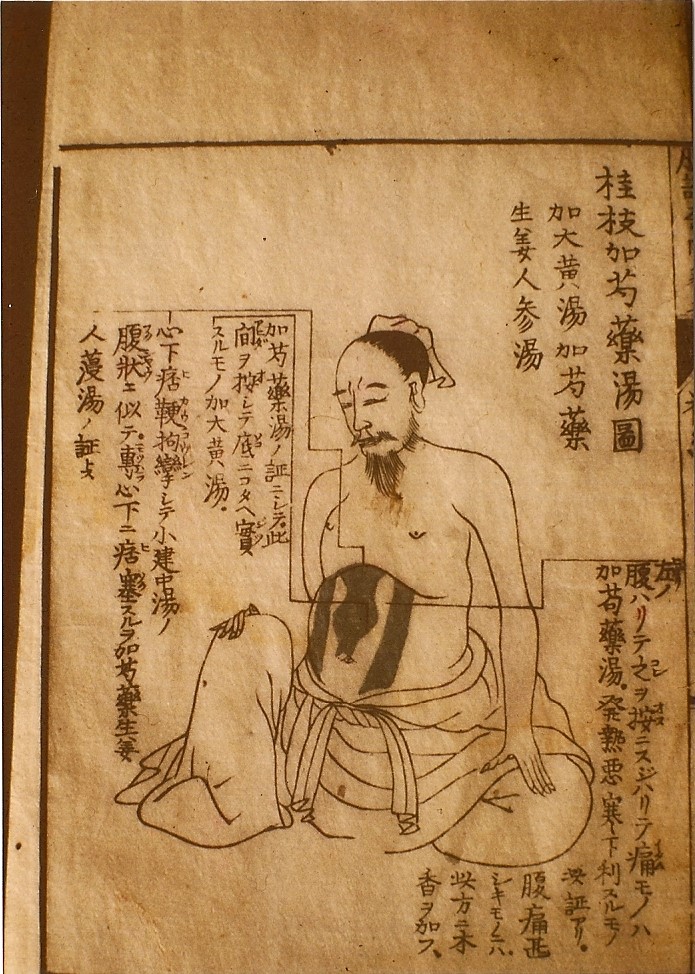 桂枝加芍藥湯圖
加大黄湯 加芍藥
生姜人参湯
腹ハリテ之ヲ按ニスジハリテ痛モノハ
加芍藥湯。発熱悪寒下利スルモノ
此証アリ。
腹痛甚
シキモノハ
此方ニ木
香ヲ加フ、
加芍藥湯ノ証ニシテ此
間ヲ按シテ底ニコタヘ實
スルモノ加大黄湯。
心下痞鞕拘攣シテ小建中湯ノ
腹状ニ似テ専心下ニ痞塞スルヲ加芍藥生姜
人蓡湯ノ証トス